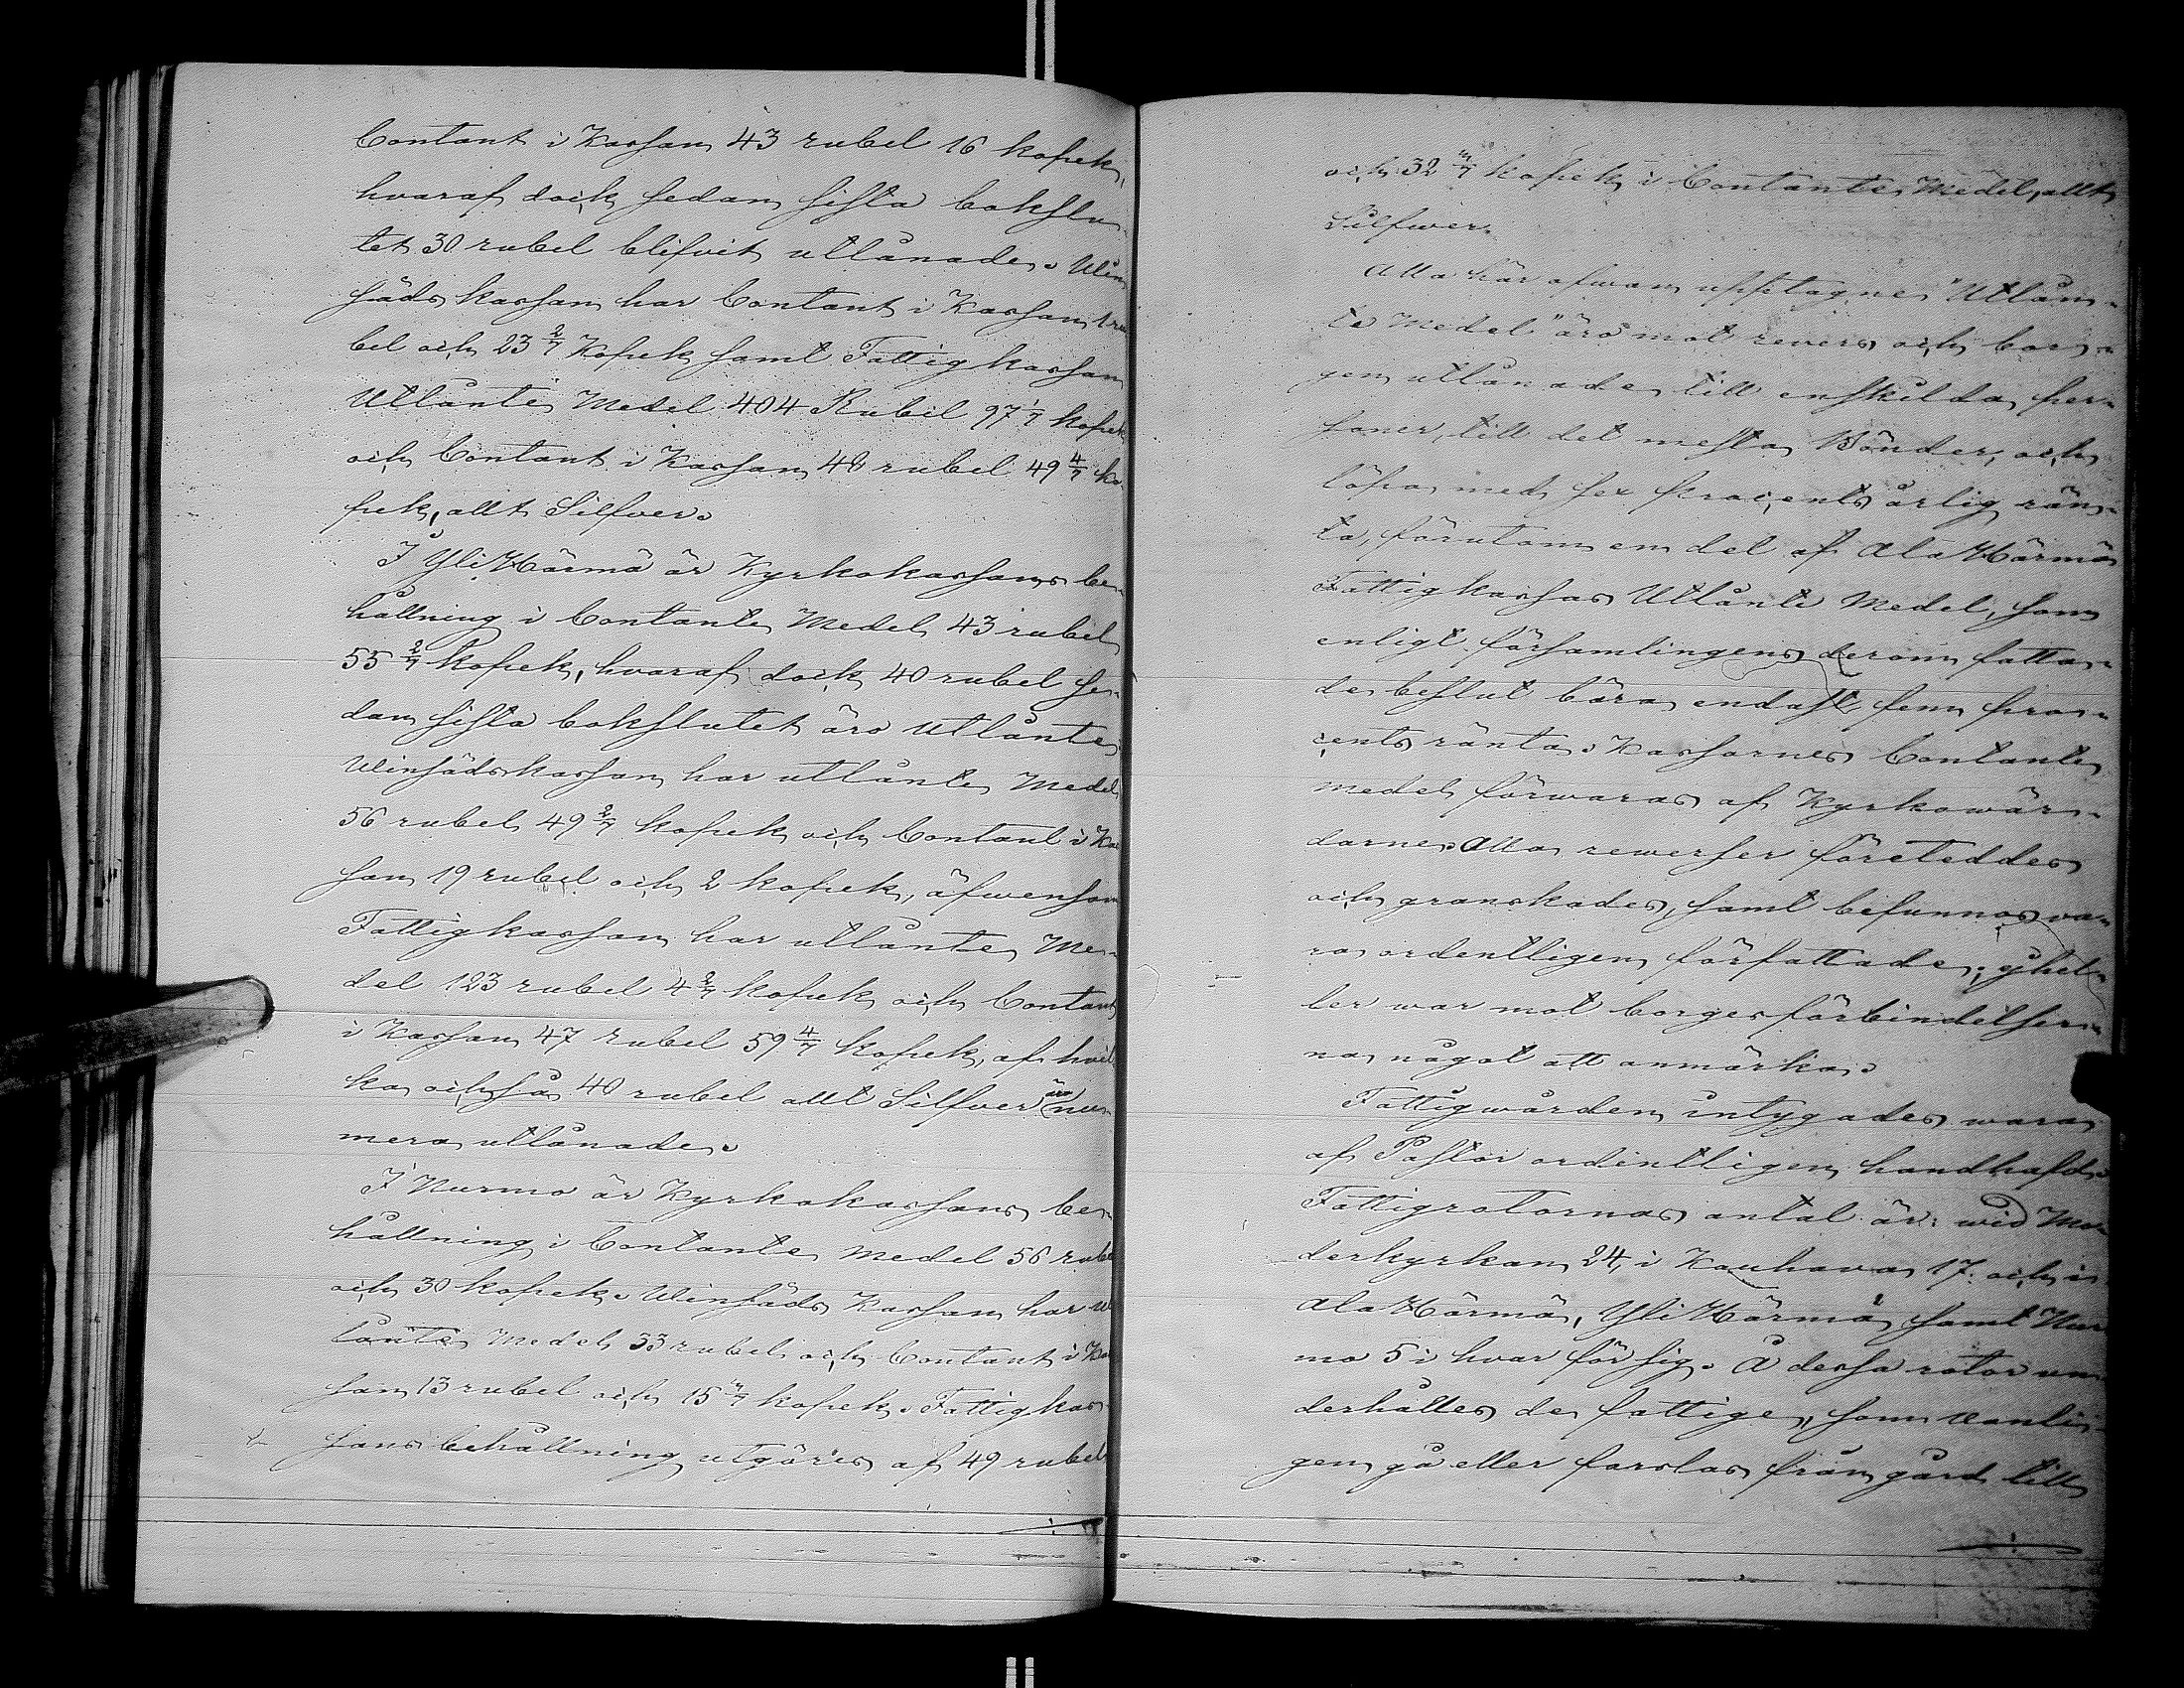 Contant i Kassan 43 rubel 16 kopek,
hvaraf dock sedan sista bokslu-
tet 30 rubel blifvit utlånade. Vin
sädskassan har Contant i Kassan 1 ru
bel och 23 2/7 Kopek samt Fattigkassan
Utlånte Medel 404 Rubel 97 1/7 kopek
och Contant i Kassan 48 rubel 49 4/7 ko-
pek, allt Silfver.
I Yli Härmä är Kyrkokassans be-
hållning i Contante Medel 43 rubel
55 2/7 kopek, hvaraf dock 40 rubel se-
dan sista bokslutet äro utlånte,
Vinsädskassan har utlånte Medel
56 rubel 49 2/7 kopek och Contant i Kas
san 19 rubel och 2 kopek, äfwensom
Fattigkassan har utlånte Me-
del 123 rubel 4 2/7 kopek och Contant
i Kassan 47 rubel 59 4/7 kopek, af hvil
ka också 40 rubel allt Silfver äro nu-
mera utlånade.
I Nurmo är Kyrkokassans be-
hållning i Contante Medel 56 rubel
och 30 kopek. Vinsäds Kassan har ut
lånte Medel 33 rubel och Contant i Kas
san 13 rubel och 15 3/7 kopek. Fattigkas-
sans behållning utgöres af 49 rubel
och 32 3/7 kopek i Contante Medel, allt
Silfwer.
Alla här ofwan upptagne "Utlån-
te Medel" äro mot revers och bor-
gen utlånade till enskilda per-
soner, till det mesta Bönder, och
löpa med sex procents årlig rän-
ta, förutom en del af Ala Härmä
Fattigkassas Utlånte Medel, som
enligt församlingens derom fatta-
de beslut bära endast fem pro-
cents ränta. Kassornes Contante
medel förwaras af Kyrkowär-
darne. Alla rewerser företeddes
och granskades, samt befunnos va-
ra ordentligen författade; ej hel-
ler war mot borgesförbindelser-
na något att anmärka.
Fattigwården intygades wara
af Pastor ordentligen handhafd.
Fattigrotornas antal är: wid Mo-
derkyrkan 24, i Kauhava 17. och i
Ala Härmä, Yli Härmä samt Nur
mo 5 i hvar för sig. Å dessa rotor un-
derhålles de fattige, som vanli-
gen gå eller forslas från gård till